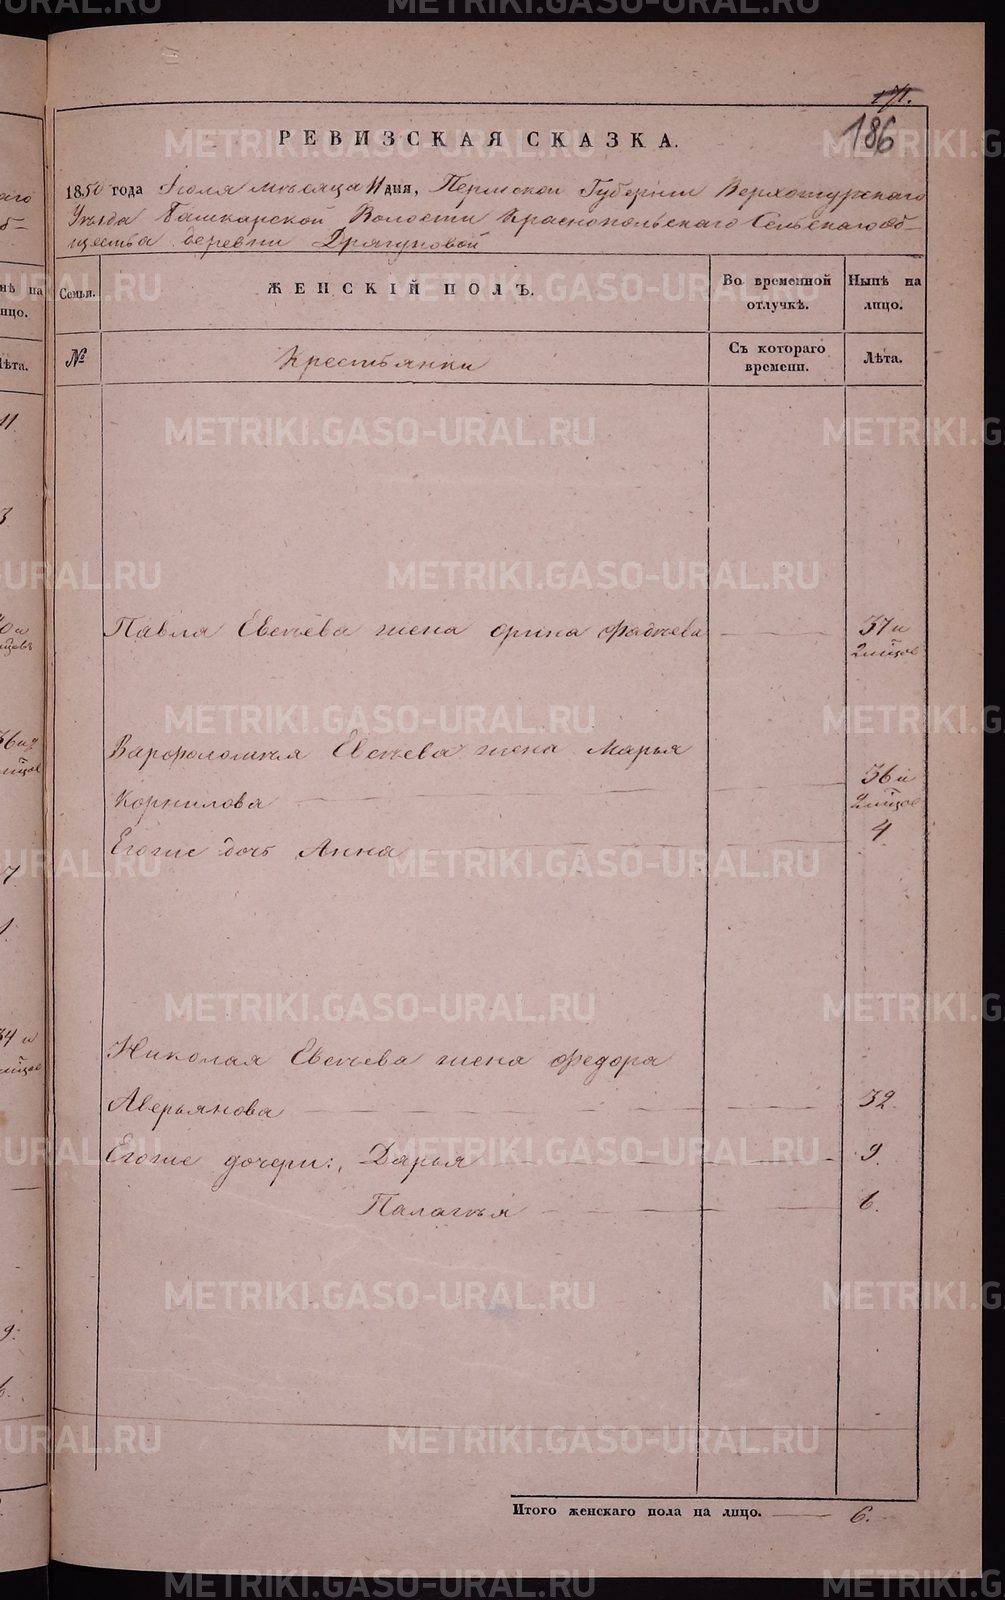 171.
186
РЕВИЗСКАЯ СКАЗКА.
1850 года Іюля мѣсяца 11 дня, Пермской Губерніи Верхотурскаго
Уѣзда Башкарской Волости Краснопольскаго Сельскаго об-
щества деревни Дрягуновой
Семьи.
ЖЕНСКІЙ ПОЛЪ.
Во временной отлучкѣ.
Нынѣ на лицо.
№
Крестьянки
Съ котораго времени.
Лѣта.
Павла Евсѣева жена Орина Фадѣева 37 и
2 мѣцов
Варфоломѣя Евсѣева жена Марья
Корнилова 36 и
2 мѣцов
Егоже дочь Анна 4
Николая Евсѣева жена Федора
Аверьянова 32.
Егоже дочери:, Дарья 9.
Палагѣя 6.
Итого женскаго пола на лицо. 6.
METRIKI.GASO-URAL.RU